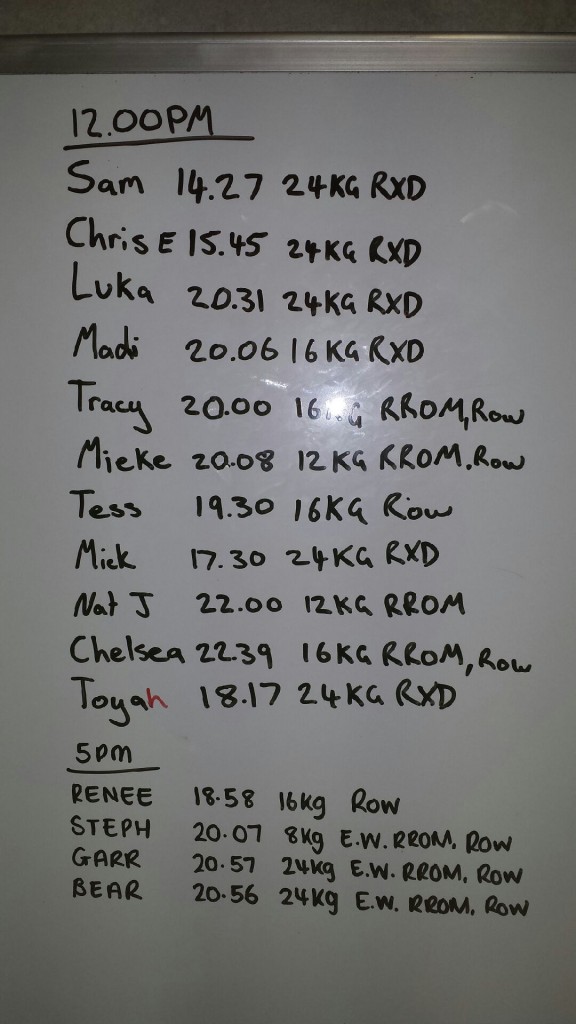 12.00PM
Sam 14.27 24KG RXD
Chris E 15.45 24KG RXD
Luka 20.31 24KG RXD
Madi 20.06 16KG RXD
Tracy 20.00 16KG RROM, Row
Mieke 20.08 12KG RROM. Row
Tess 19.30 16KG Row
Mick 17.30 24KG RXD
Nat J 22.00 12KG RROM
Chelsea 22.39 16KG RROM, Row
Toyah 18.17 24KG RXD
5pm
RENEE 18.58 16kg Row
STEPH 20.07 8kg E.W. RROM. Row
GARR 20.57 24kg E.W. RROM. Row
BEAR 20.56 24kg E.W. RROM. Row